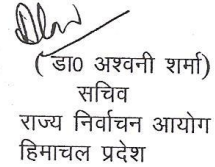 ( डा0 अश्वनी शर्मा)
सचिव
राज्य निर्वाचन आयोग
हिमाचल प्रदेश